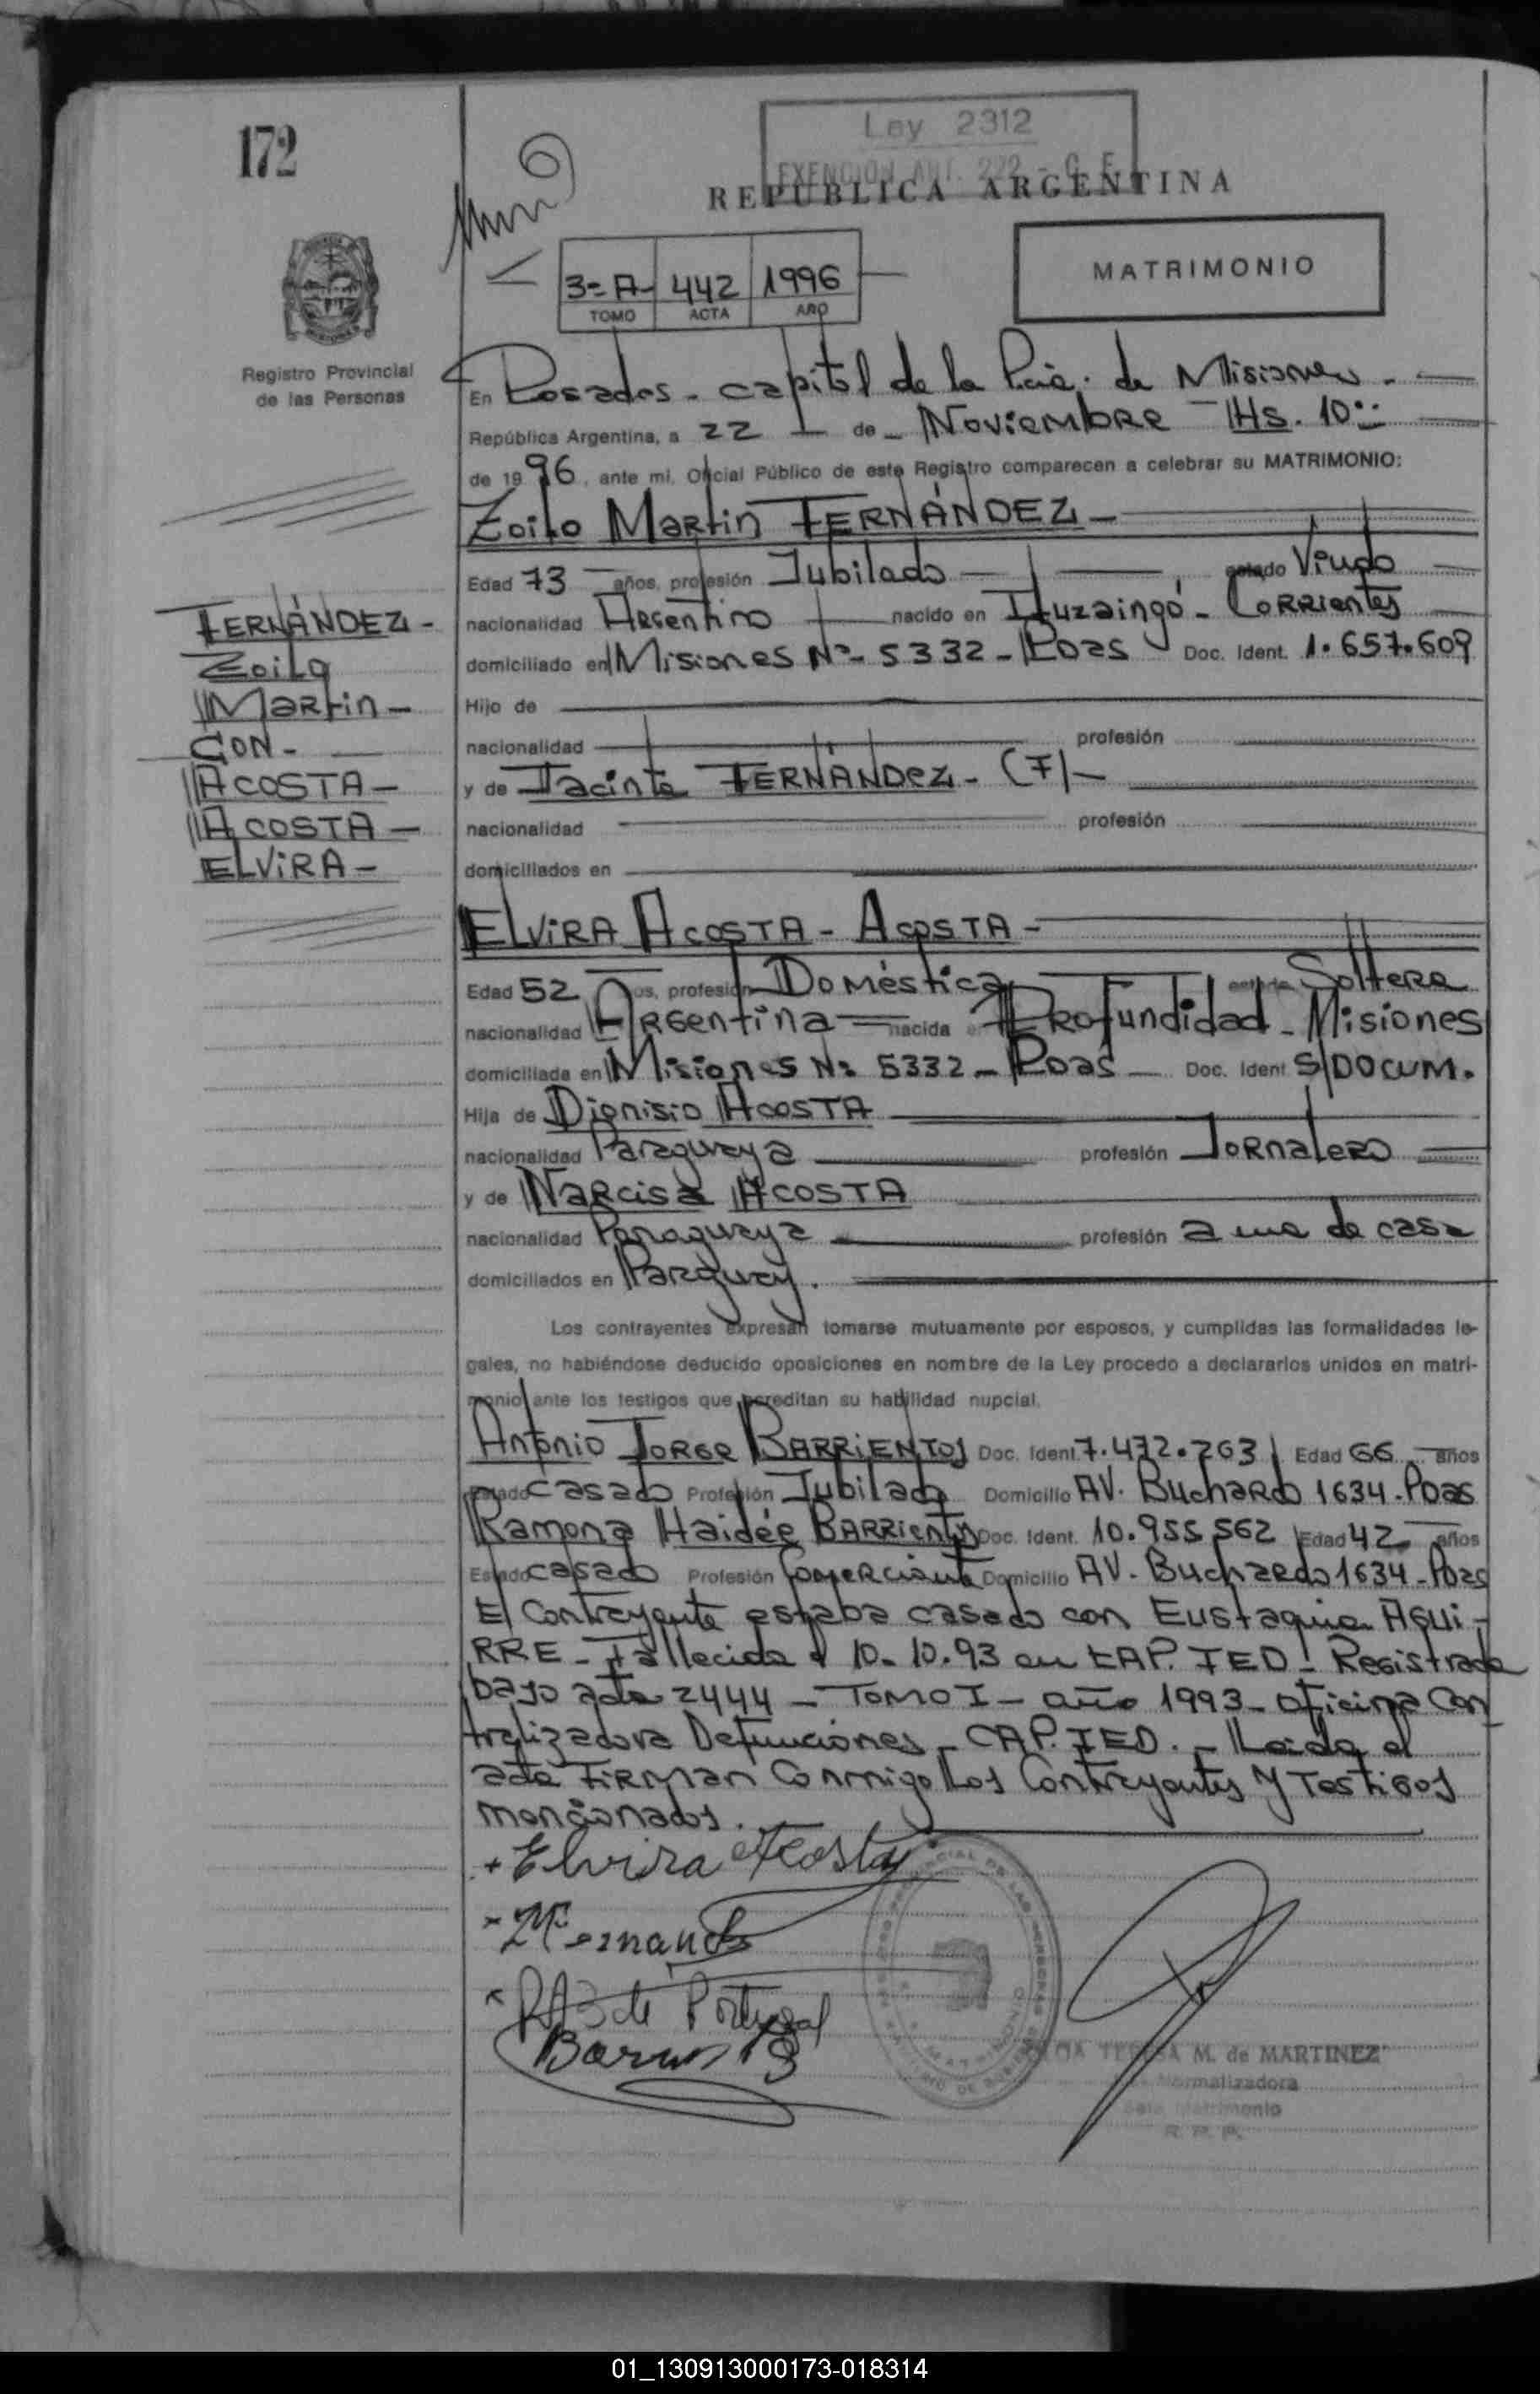 172
Ley 2312
EXENCION ART. 222 - C. F.
REPUBLICA ARGENTINA
MATRIMONIO
3=A- 442 1996
TOMO ACTA AÑO
Registro Provincial
de las Personas
En Posadas - capital de la Pcia. de Misiones -
República Argentina, a 22 de Noviembre - Hs. 10
de 1996, ante mi, Oficial Público de este Registro comparecen a celebrar su MATRIMONIO:
Zoilo Martin FERNÁNDEZ -
Edad 73 años, profesión Jubilado estado Viudo
nacionalidad Argentino nacido en Ituzaingó - Corrientes
domiciliado en Misiones Nº 5332 - Pdas Doc. Ident. 1.657.609
Hijo de
nacionalidad profesión
y de Jacinta FERNÁNDEZ - (F) -
nacionalidad profesión
domiciliados en
FERNÁNDEZ -
Zoilo
Martin -
CON -
ACOSTA -
ACOSTA -
ELVIRA -
ELVIRA ACOSTA - ACOSTA -
Edad 52 años, profesión Doméstica estado Soltera
nacionalidad Argentina nacida en Profundidad - Misiones
domiciliada en Misiones Nº 5332 - Pdas - Doc. Ident S/DOCUM.
Hija de Dionisio ACOSTA
nacionalidad Paraguaya profesión Jornalero
y de Narcisa ACOSTA
nacionalidad Paraguaya profesión ama de casa
domiciliados en Parguay.
Los contrayentes expresan tomarse mutuamente por esposos, y cumplidas las formalidades le-
gales, no habiéndose deducido oposiciones en nombre de la Ley procedo a declararlos unidos en matri-
monio ante los testigos que acreditan su habilidad nupcial.
Antonio Jorge BARRIENTOS Doc. Ident. 7.472.263 Edad 66 años
Estado casado Profesión Jubilado Domicilio AV. Buchardo 1634 - Pdas
Ramona Haidée BARRIENTOS Doc. Ident. 10.955.562 Edad 42 años
Estado casado Profesión Comerciante Domicilio AV. Buchardo 1634 - Pdas
El Contrayente estaba casado con Eustaquia Agui-
RRE - Fallecida el 10.10.93 en CAP. FED - Registrada
bajo acta 2444 - TOMO I - año 1993 - oficina Cen
tralizadora Defunciones - CAP. FED. - Leida el
acta Firman Conmigo Los Contrayentes y Testigos
mencionados.
+ Elvira Acosta
x M Fernandez
x R H B de Portugal
Barrientos
TERESA M. de MARTINEZ
Normalizadora
Matrimonio
R. P. P.
01_130913000173-018314